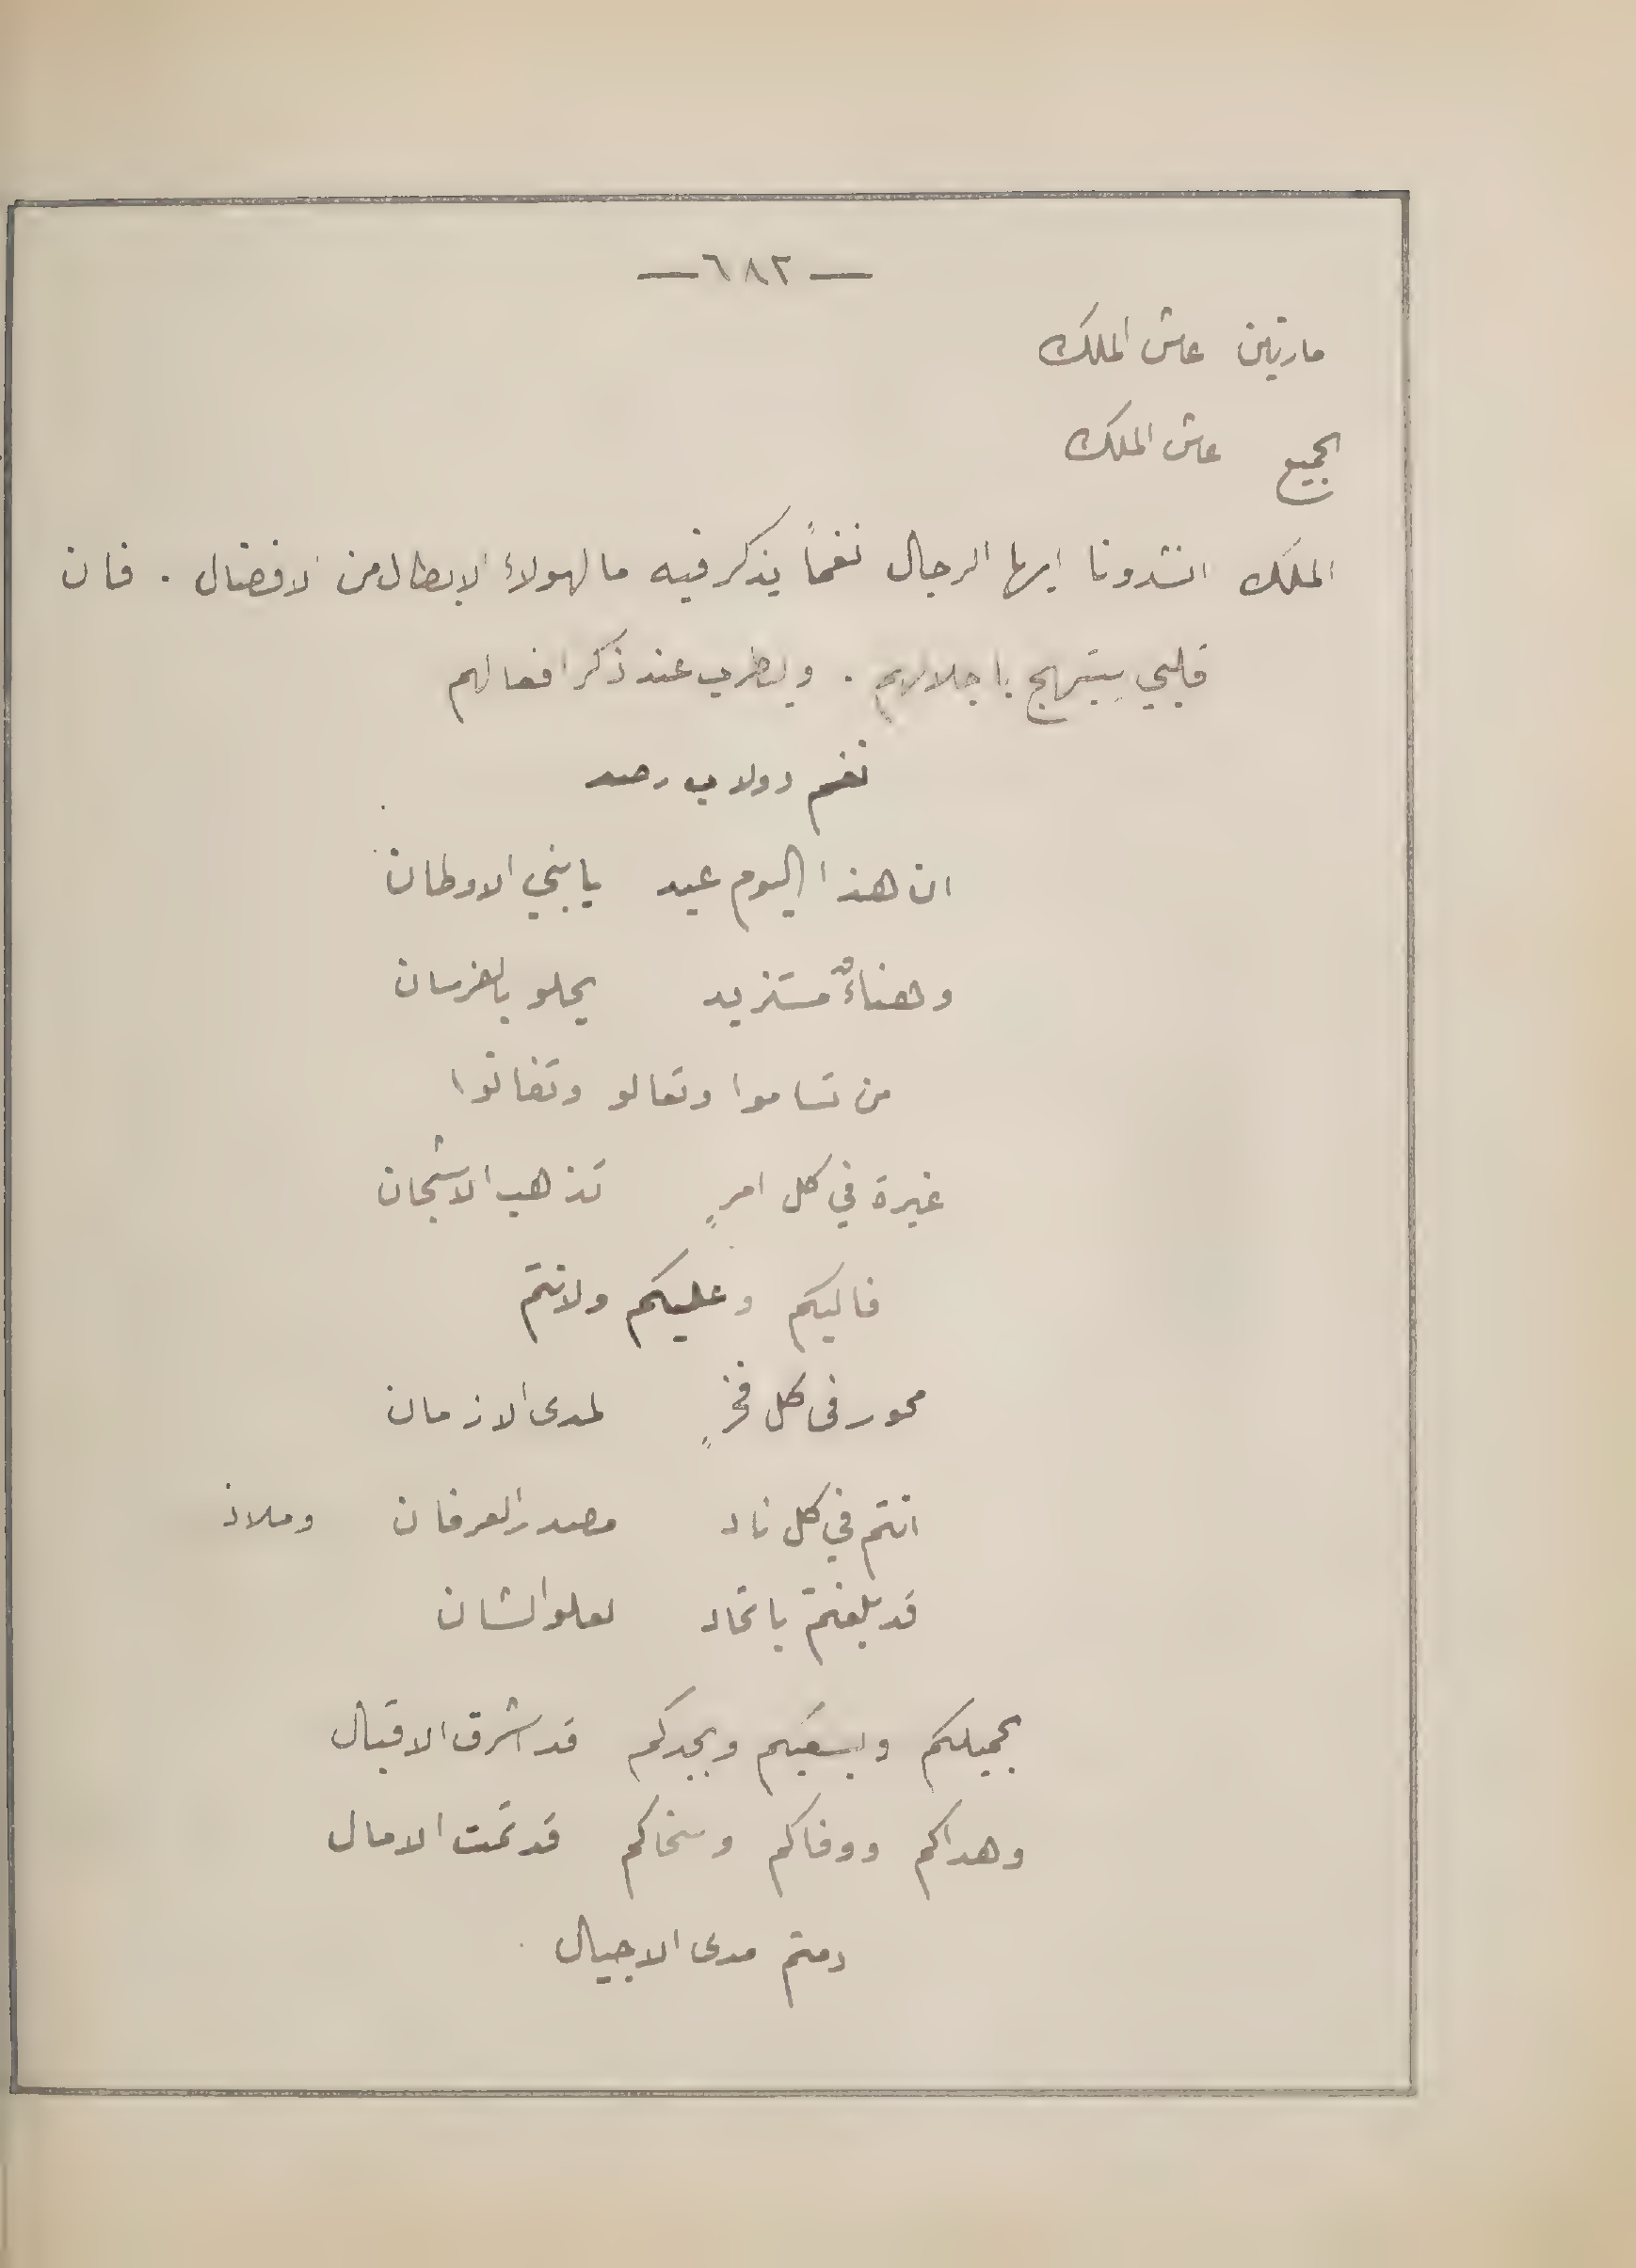 — ٦٨٢ —
مارتين عاش الملك
الجميع عاش الملك
الملك انشدونا ايها الرجال نغماً يذكر فيه ما لهولاء الابطال من الافضال . فان
قلبي يبتهج باجلالهم . ويطرب عند ذكر افعالهم
نغم دولاب رصد
ان هذا اليوم عيد يا بني الاوطان
وهناءٌ مستزيد يحلو بالفرسان
من تساموا وتعالو وتفانوا
غيرة في كل امرٍ تذهب الاشجان
فاليكم وعليكم ولانتم
محور فى كل فخرٍ لمدى الازمان
انتم في كل ناد مصدر العرفان وملاذ
قد بلغتم باتحاد لعلو الشان
بجميلكم وبسعيكم وبجدكم قد اشرق الاقبال
وهداكم ووفاكم وسخاكم قد تمت الامال
دمتم مدى الاجيال